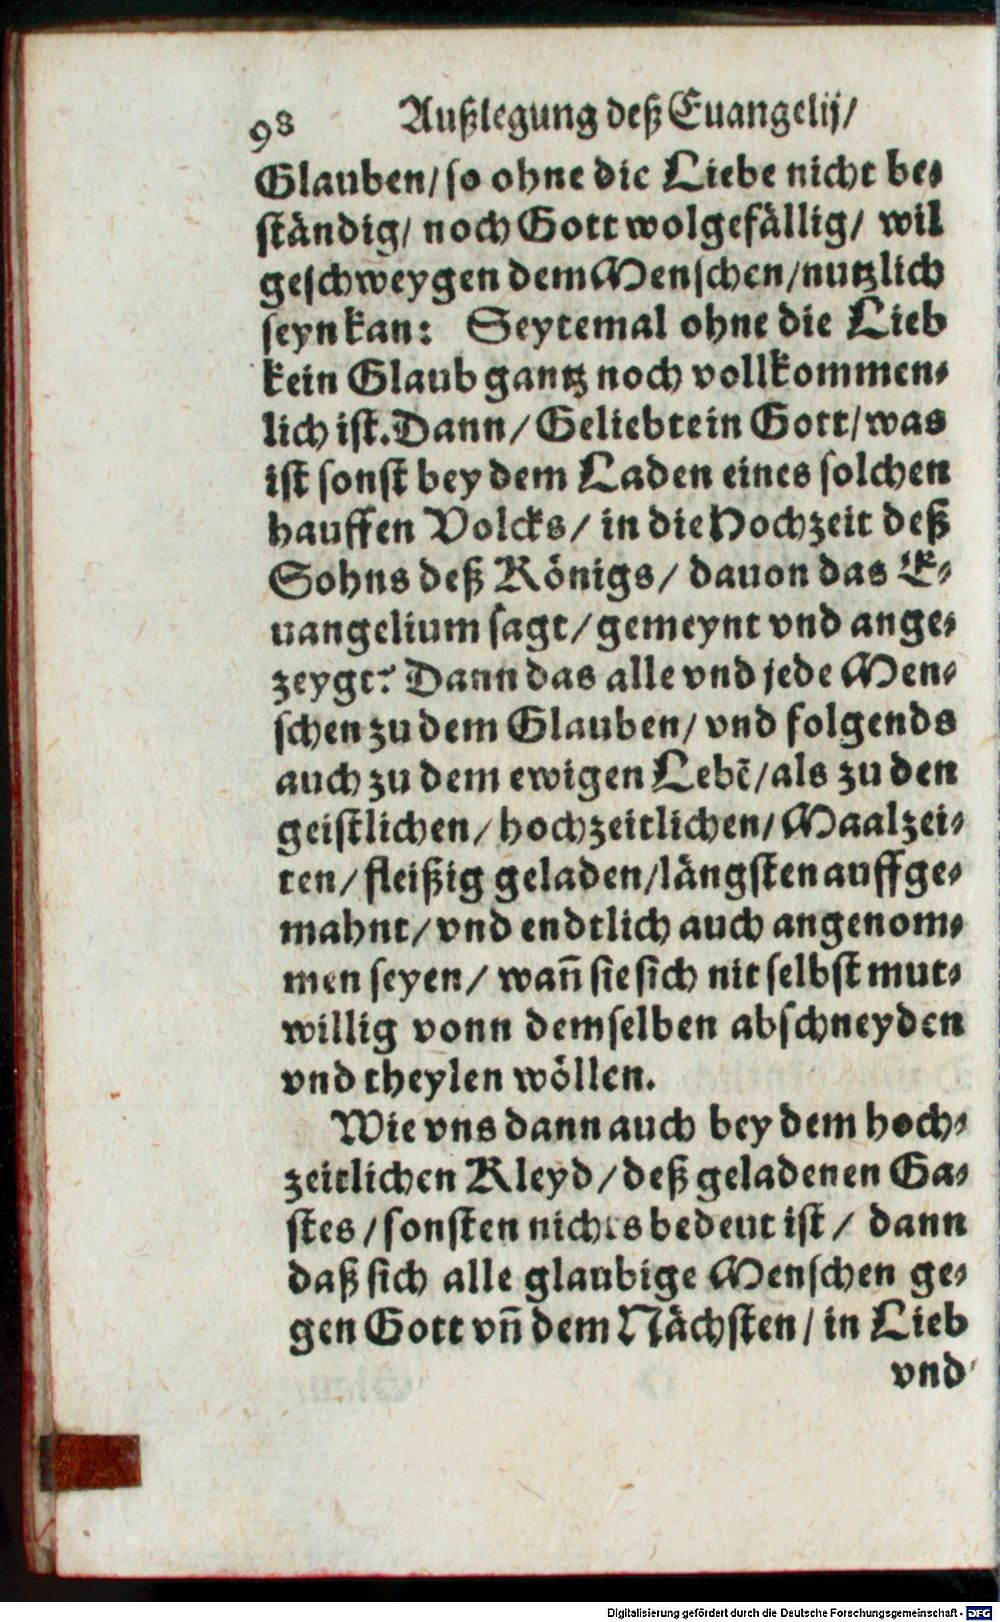 98 Außlegung deß Euangelij/
Glauben/ so ohne die Liebe nicht be⸗
ständig/ noch Gott wolgefällig/ wil
geschweygen dem Menschen/ nutzlich
seyn kan: Seytemal ohne die Lieb
kein Glaub gantz noch vollkommen⸗
lich ist. Dann/ Geliebte in Gott/ was
ist sonst bey dem Laden eines solchen
hauffen Volcks/ in die Hochzeit deß
Sohns deß Königs/ dauon das E⸗
uangelium sagt/ gemeynt vnd ange⸗
zeygt? Dann das alle vnd jede Men⸗
schen zu dem Glauben/ vnd folgends
auch zu dem ewigen Lebẽ/ als zu den
geistlichen/ hochzeitlichen/ Maalzei⸗
ten/ fleißig geladen/ längsten auffge⸗
mahnt/ vnd endtlich auch angenom⸗
men seyen/ wañ sie sich nit selbst mut⸗
willig vonn demselben abschneyden
vnd theylen wöllen.
Wie vns dann auch bey dem hoch⸗
zeitlichen Kleyd/ deß geladenen Ga⸗
stes/ sonsten nichts bedeut ist/ dann
daß sich alle glaubige Menschen ge⸗
gen Gott vñ dem Nächsten/ in Lieb
vnd
Digitalisierung gefördert durch die Deutsche Forschungsgemeinschaft - DFG